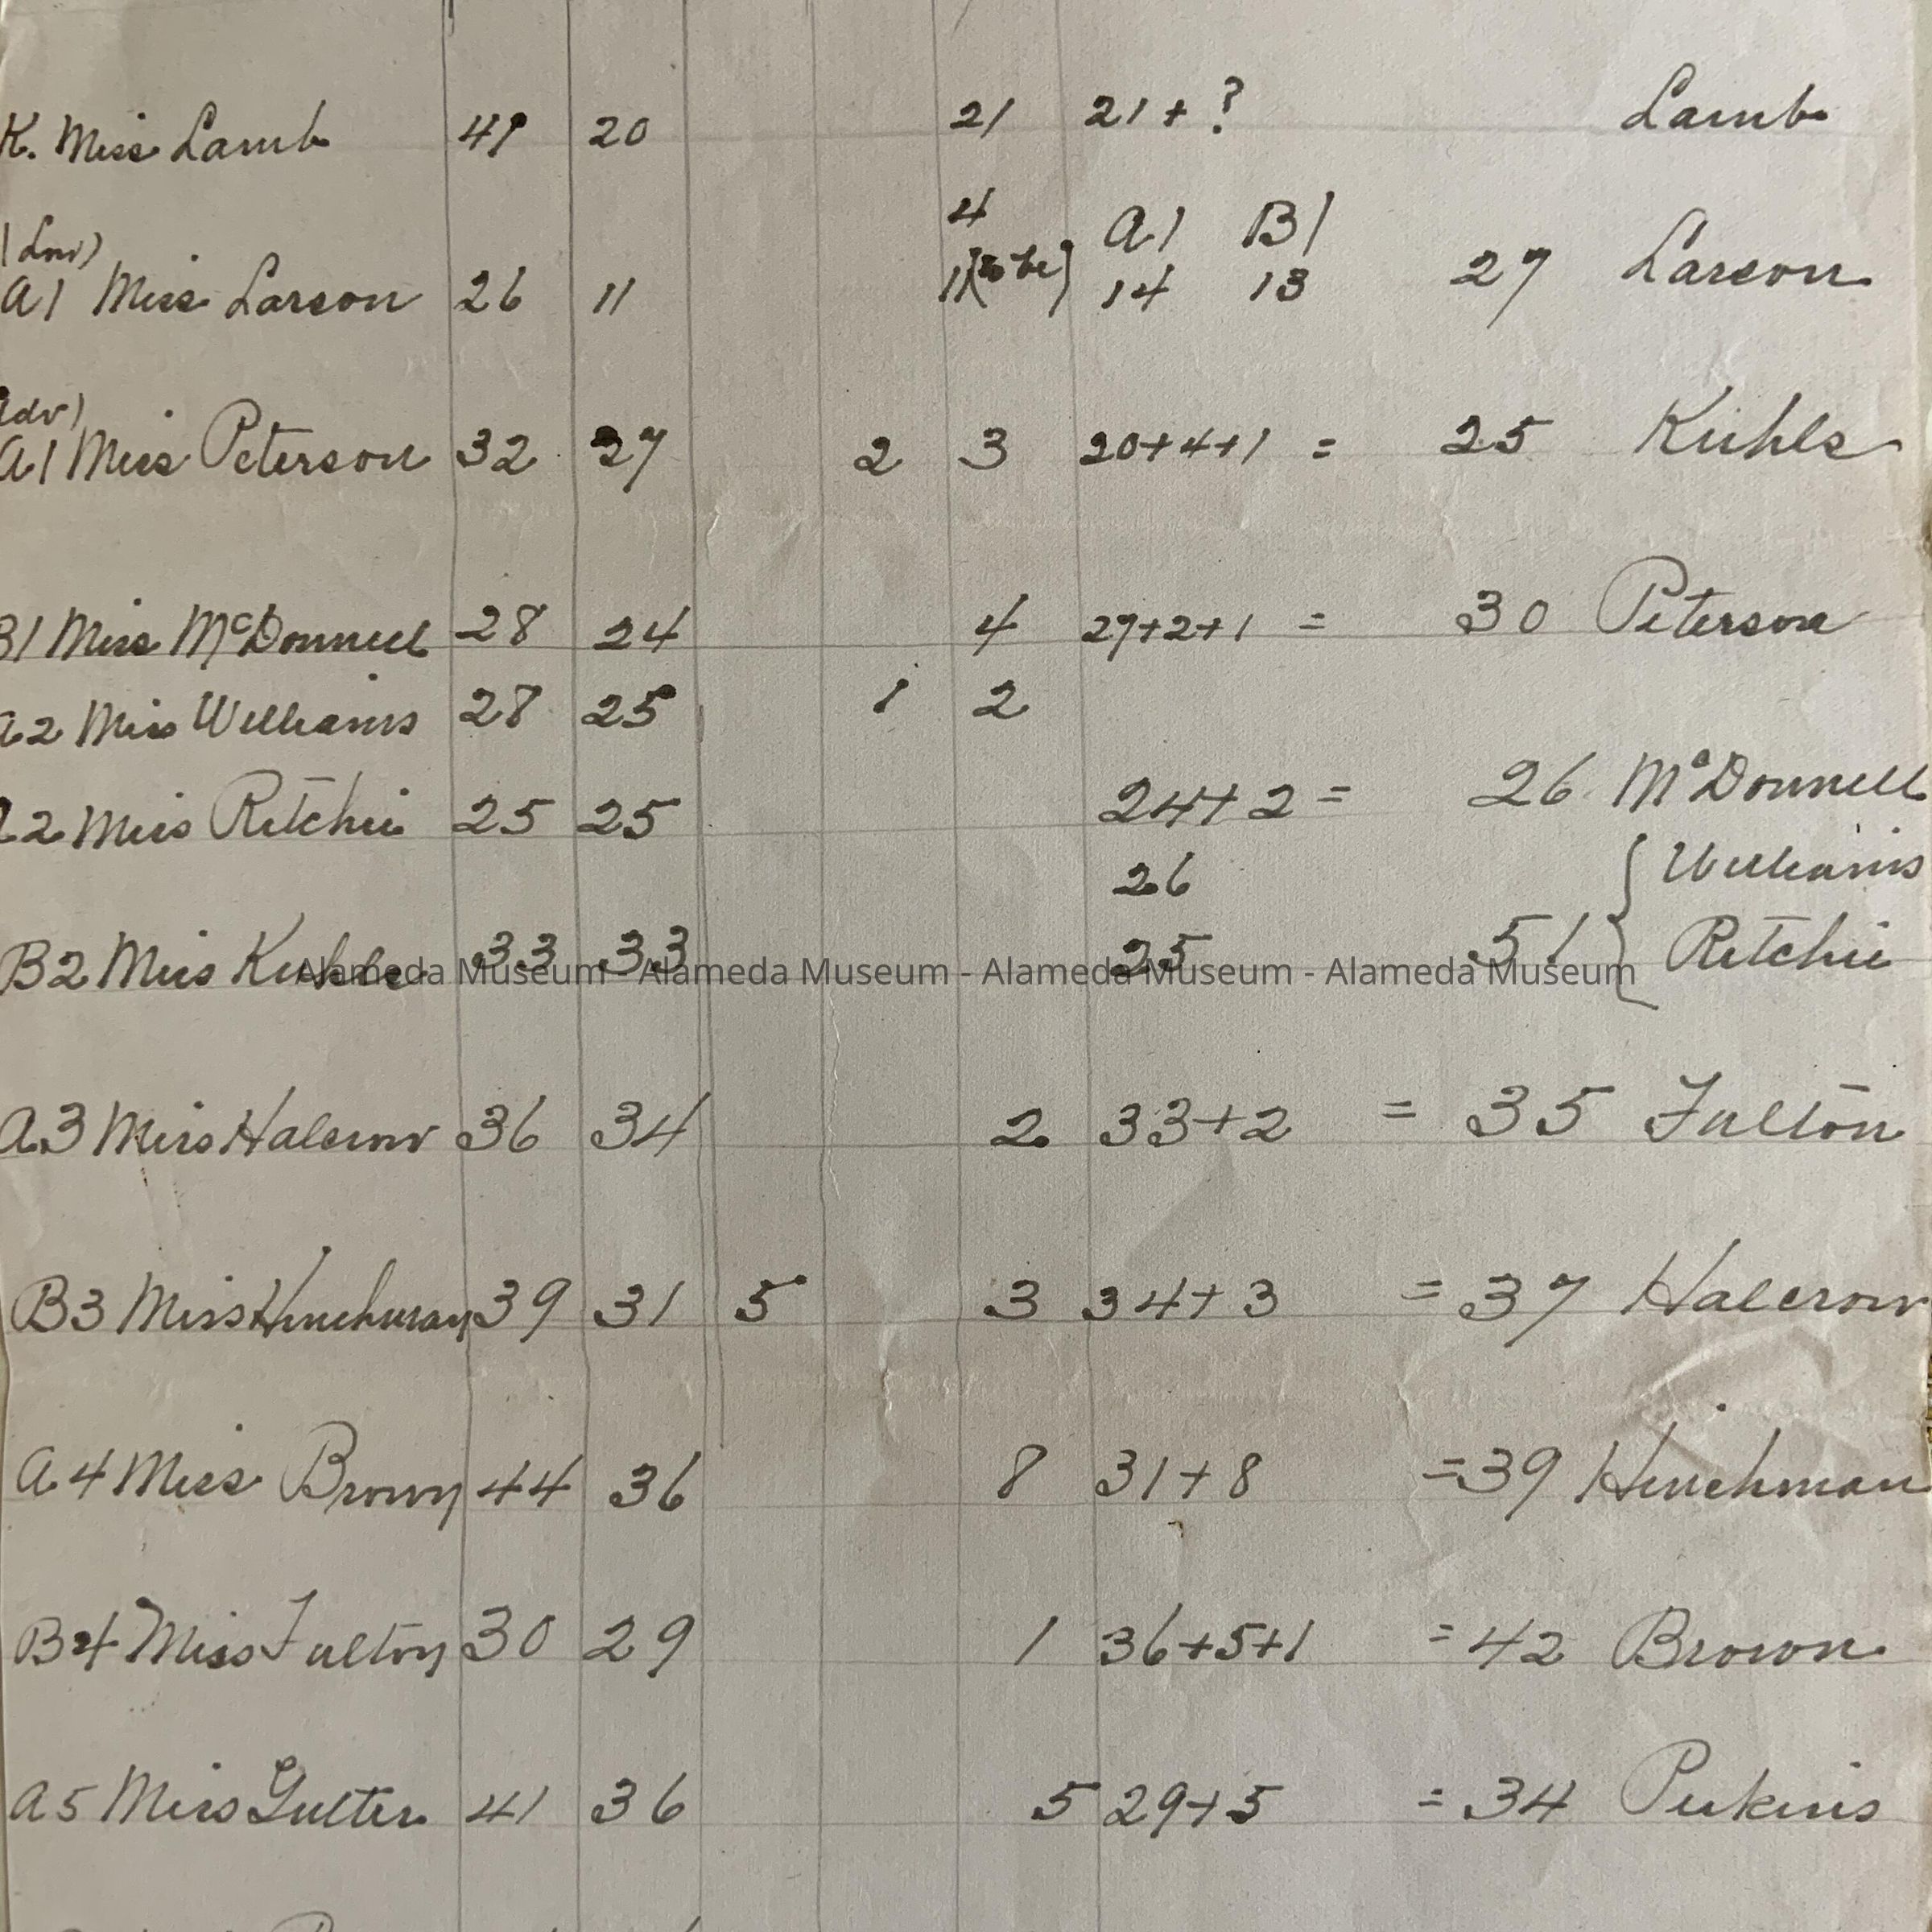 K. Miss Lamb 49 20 21 21 + ? Lamb
4 A1 B1
A1 Miss Larson 26 11 14 13 27 Larson
adv)
A1 Miss Peterson 32 27 2 3 20+4+1 = 25 Kuhls
B1 Miss McDonnell 28 24 4 27+2+1 = 30 Peterson
A2 Miss Williams 28 25 1 2
A2 Miss Ritchie 25 25 24+2 = 26 McDonnell
26 { Williams
B2 Miss Kuhls 33 33 25 51 { Ritchie
Alameda Museum - Alameda Museum - Alameda Museum - Alameda Museum
A3 Miss Halcrow 36 34 2 33+2 = 35 Fulton
B3 Miss Hinchman 39 31 5 3 34+3 = 37 Halcrow
A4 Miss Brown 44 36 8 31+8 = 39 Hinchman
B4 Miss Fulton 30 29 1 36+5+1 = 42 Brown
A5 Miss Gulter 41 36 5 29+5 = 34 Perkins